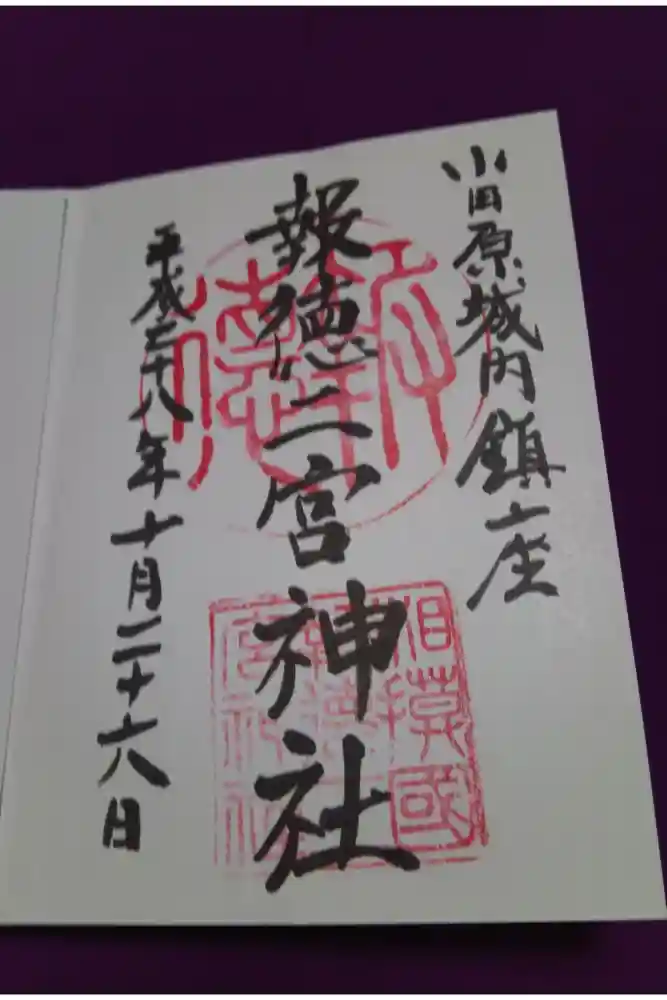 小田原城内鎮座
報徳二宮神社
平成二十八年十月二十六日
相模國
報徳二
宮神社